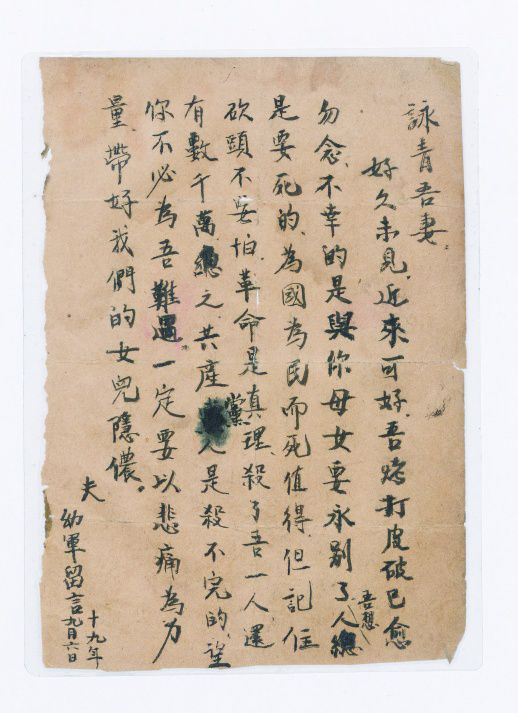 詠青吾妻、
好久未見、近來可好、吾烤打皮破已愈
勿念、不幸的是與你母女要永别了、吾想人總
是要死的、為國為民而死值得、但記住
砍頭不要怕、革命是真理、殺了吾一人還
有數千萬、總之、共產黨人是殺不完的、望
你不必為吾難過、一定要以悲痛為力
量、帶好我們的女兒隱儂。
夫
幼軍留言
十九年
九月六日